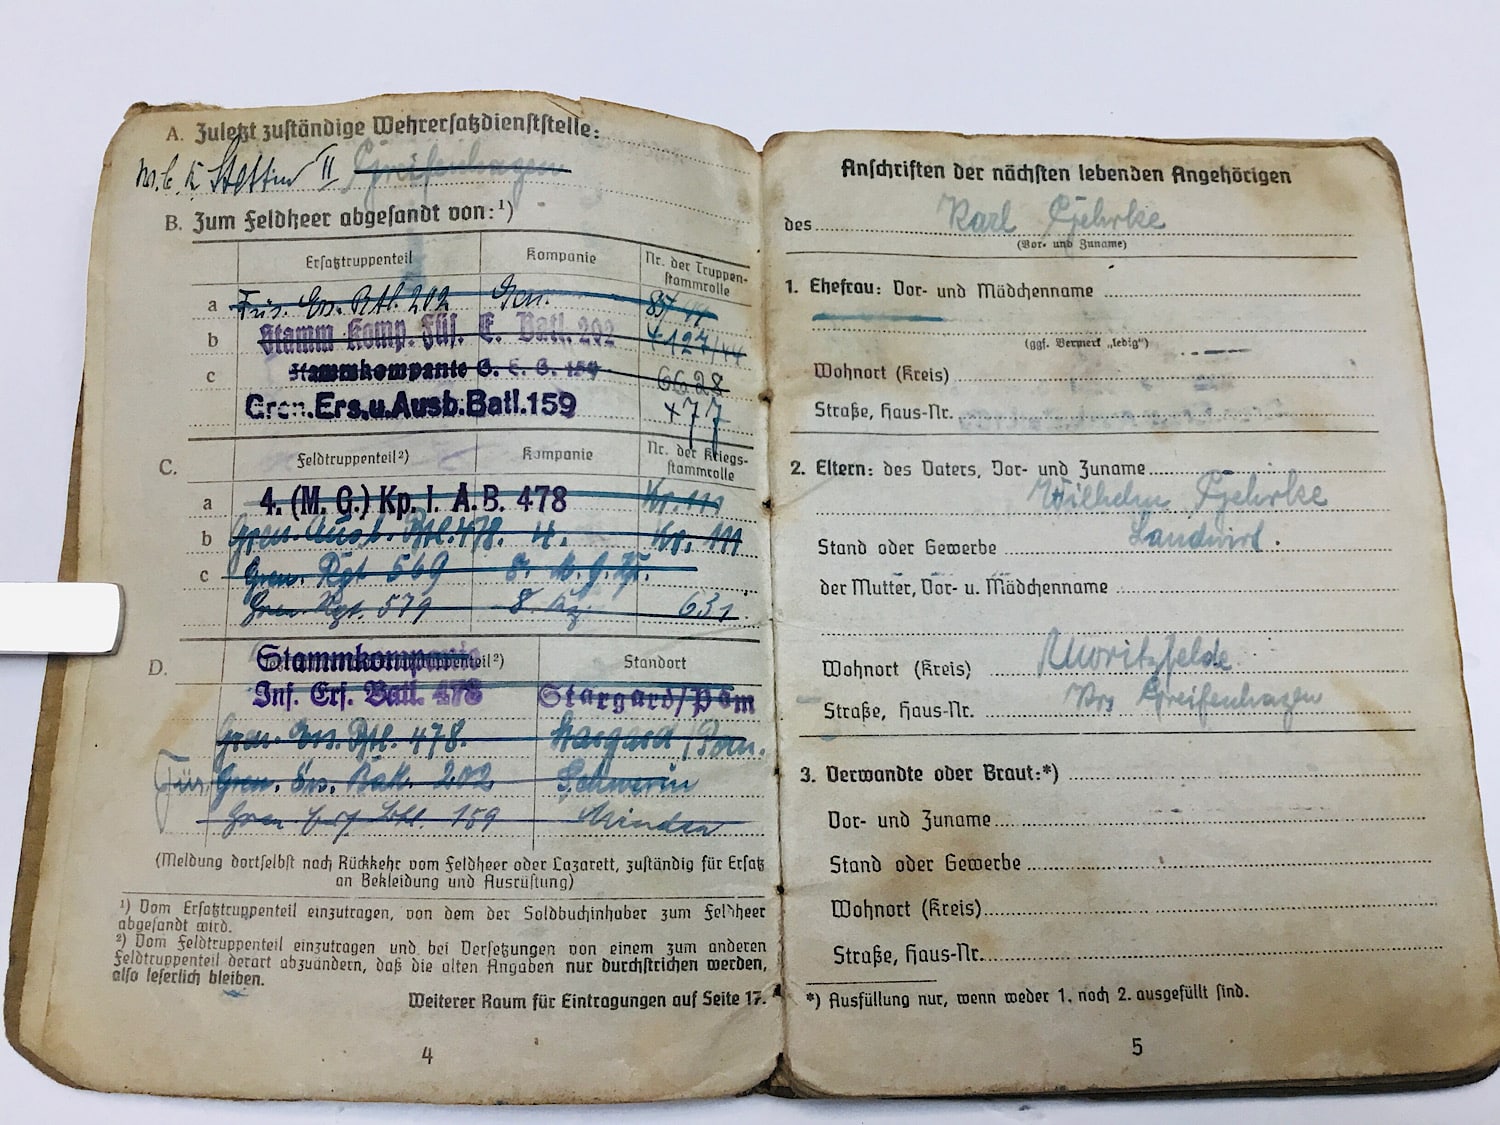 A. Zuletzt zuständige Wehrersatzdienststelle:
Stettin II Greifenhagen
B. Zum Feldheer abgesandt von:¹)
Ersatztruppenteil Kompanie Nr. der Truppen-
stammrolle
a Füs. Ers. Btl. 202
b Stamm Komp. Füs. E. Batl. 202
c Stammkompanie G. E. B. 159 6628
Gren.Ers.u.Ausb.Batl.159 477
C. Feldtruppenteil²) Kompanie Nr. der Kriegs-
stammrolle
a 4. (M. G.) Kp. I. A. B. 478 Nr. 111
b Gren. Ausb. Btl. 478. 4. Nr. 111
c Gren. Rgt 569 8. M. G. Kp.
Gren. Rgt. 579 8. 631
D. Stammkompanie Standort
Inf. Ers. Batl. 478 Stargard/Pom
Gren. Ers. Btl. 478. Stargard/Pom.
Füs. Gren. Ers. Batl. 202 Schwerin
Gren. Ers. Btl. 159 Minden
(Meldung dortselbst nach Rückkehr vom Feldheer oder Lazarett, zuständig für Ersatz
an Bekleidung und Ausrüstung)
¹) Vom Ersatztruppenteil einzutragen, von dem der Soldbuchinhaber zum Feldheer
abgesandt wird.
²) Vom Feldtruppenteil einzutragen und bei Versetzungen von einem zum anderen
Feldtruppenteil derart abzuändern, daß die alten Angaben nur durchstrichen werden,
also leserlich bleiben.
Weiterer Raum für Eintragungen auf Seite 17.
4
Anschriften der nächsten lebenden Angehörigen
des Karl Gehrke
(Vor- und Zuname)
1. Ehefrau: Vor- und Mädchenname
(ggf. Vermerk „ledig")
Wohnort (Kreis)
Straße, Haus-Nr.
2. Eltern: des Vaters, Vor- und Zuname
Wilhelm Gehrke
Stand oder Gewerbe Landwirt.
der Mutter, Vor- u. Mädchenname
Wohnort (Kreis) Moritzfelde
Straße, Haus-Nr. Krs Greifenhagen
3. Verwandte oder Braut:*)
Vor- und Zuname
Stand oder Gewerbe
Wohnort (Kreis)
Straße, Haus-Nr.
*) Ausfüllung nur, wenn weder 1. noch 2. ausgefüllt sind.
5